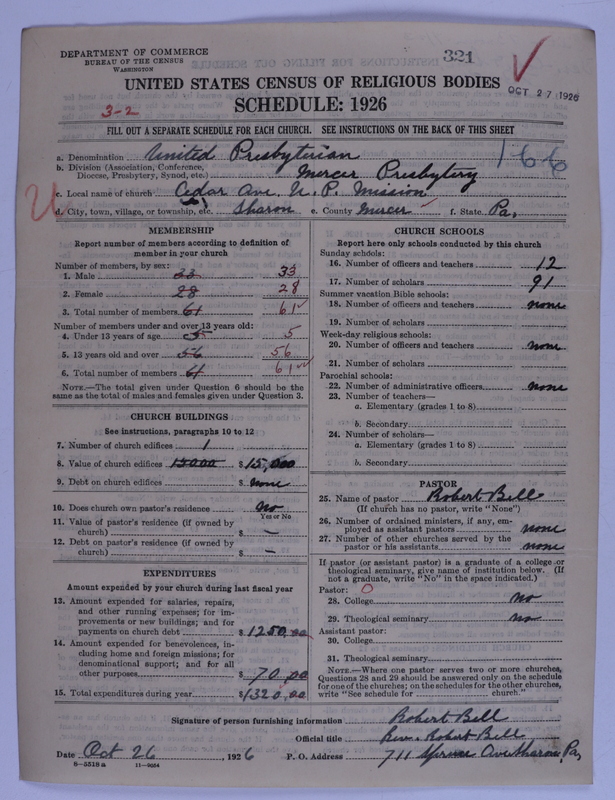 DEPARTMENT OF COMMERCE
BUREAU OF THE CENSUS
WASHINGTON
321
UNITED STATES CENSUS OF RELIGIOUS BODIES
OCT 27 1926
SCHEDULE: 1926
3-2
FILL OUT A SEPARATE SCHEDULE FOR EACH CHURCH. SEE INSTRUCTIONS ON THE BACK OF THIS SHEET
166
a. Denomination United Presbyterian
b. Division (Association, Conference, Diocese, Presbytery, Synod, etc.) Mercer Presbytery
c. Local name of church Cedar Ave. U. P. Mission
d. City, town, village, or township, etc. Sharon e. County Mercer f. State Pa,
MEMBERSHIP
Report number of members according to definition of
member in your church
Number of members, by sex:
1. Male 33 33
2. Female 28 28
3. Total number of members 61 61
Number of members under and over 13 years old:
4. Under 13 years of age 5 5
5. 13 years old and over 56 56
6. Total number of members 61 61
NOTE.—The total given under Question 6 should be
same as the total of males and females given under Question 3.
CHURCH BUILDINGS
See instructions, paragraphs 10 to 12
7. Number of church edifices 1
8. Value of church edifices 15000 $15,000
9. Debt on church edifices $ none
10. Does church own pastor's residence No
Yes or No
11. Value of pastor's residence (if owned by
church) $ —
12. Debt on pastor's residence (if owned by
church) $ —
EXPENDITURES
Amount expended by your church during last fiscal year
13. Amount expended for salaries, repairs,
and other running expenses; for im-
provements or new buildings; and for
payments on church debt $1250.00
14. Amount expended for benevolences, in-
cluding home and foreign missions; for
denominational support; and for all
other purposes $ 70.00
15. Total expenditures during year $1320.00
CHURCH SCHOOLS
Report here only schools conducted by this church
Sunday schools:
16. Number of officers and teachers 12
17. Number of scholars 91
Summer vacation Bible schools:
18. Number of officers and teachers none
19. Number of scholars
Week-day religious schools:
20. Number of officers and teachers none
21. Number of scholars
Parochial schools:
22. Number of administrative officers none
23. Number of teachers—
a. Elementary (grades 1 to 8)
b. Secondary
24. Number of scholars—
a. Elementary (grades 1 to 8)
b. Secondary
PASTOR
25. Name of pastor Robert Bell
(If church has no pastor, write "None")
26. Number of ordained ministers, if any, em-
ployed as assistant pastors none
27. Number of other churches served by the
pastor or his assistants none
If pastor (or assistant pastor) is a graduate of a college or
theological seminary, give name of institution below. (If
not a graduate, write "No" in the space indicated.)
Pastor: 0
28. College No
29. Theological seminary No
Assistant pastor:
30. College
31. Theological seminary
NOTE.—Where one pastor serves two or more churches,
Questions 28 and 29 should be answered only on the schedule
for one of the churches; on the schedules for the other churches,
write "See schedule for church."
Signature of person furnishing information Robert Bell
Official title Rev. Robert Bell
Date Oct 26, 1926 P. O. Address 711 Ave Sharon, Pa,
8-5518 a 11-9084